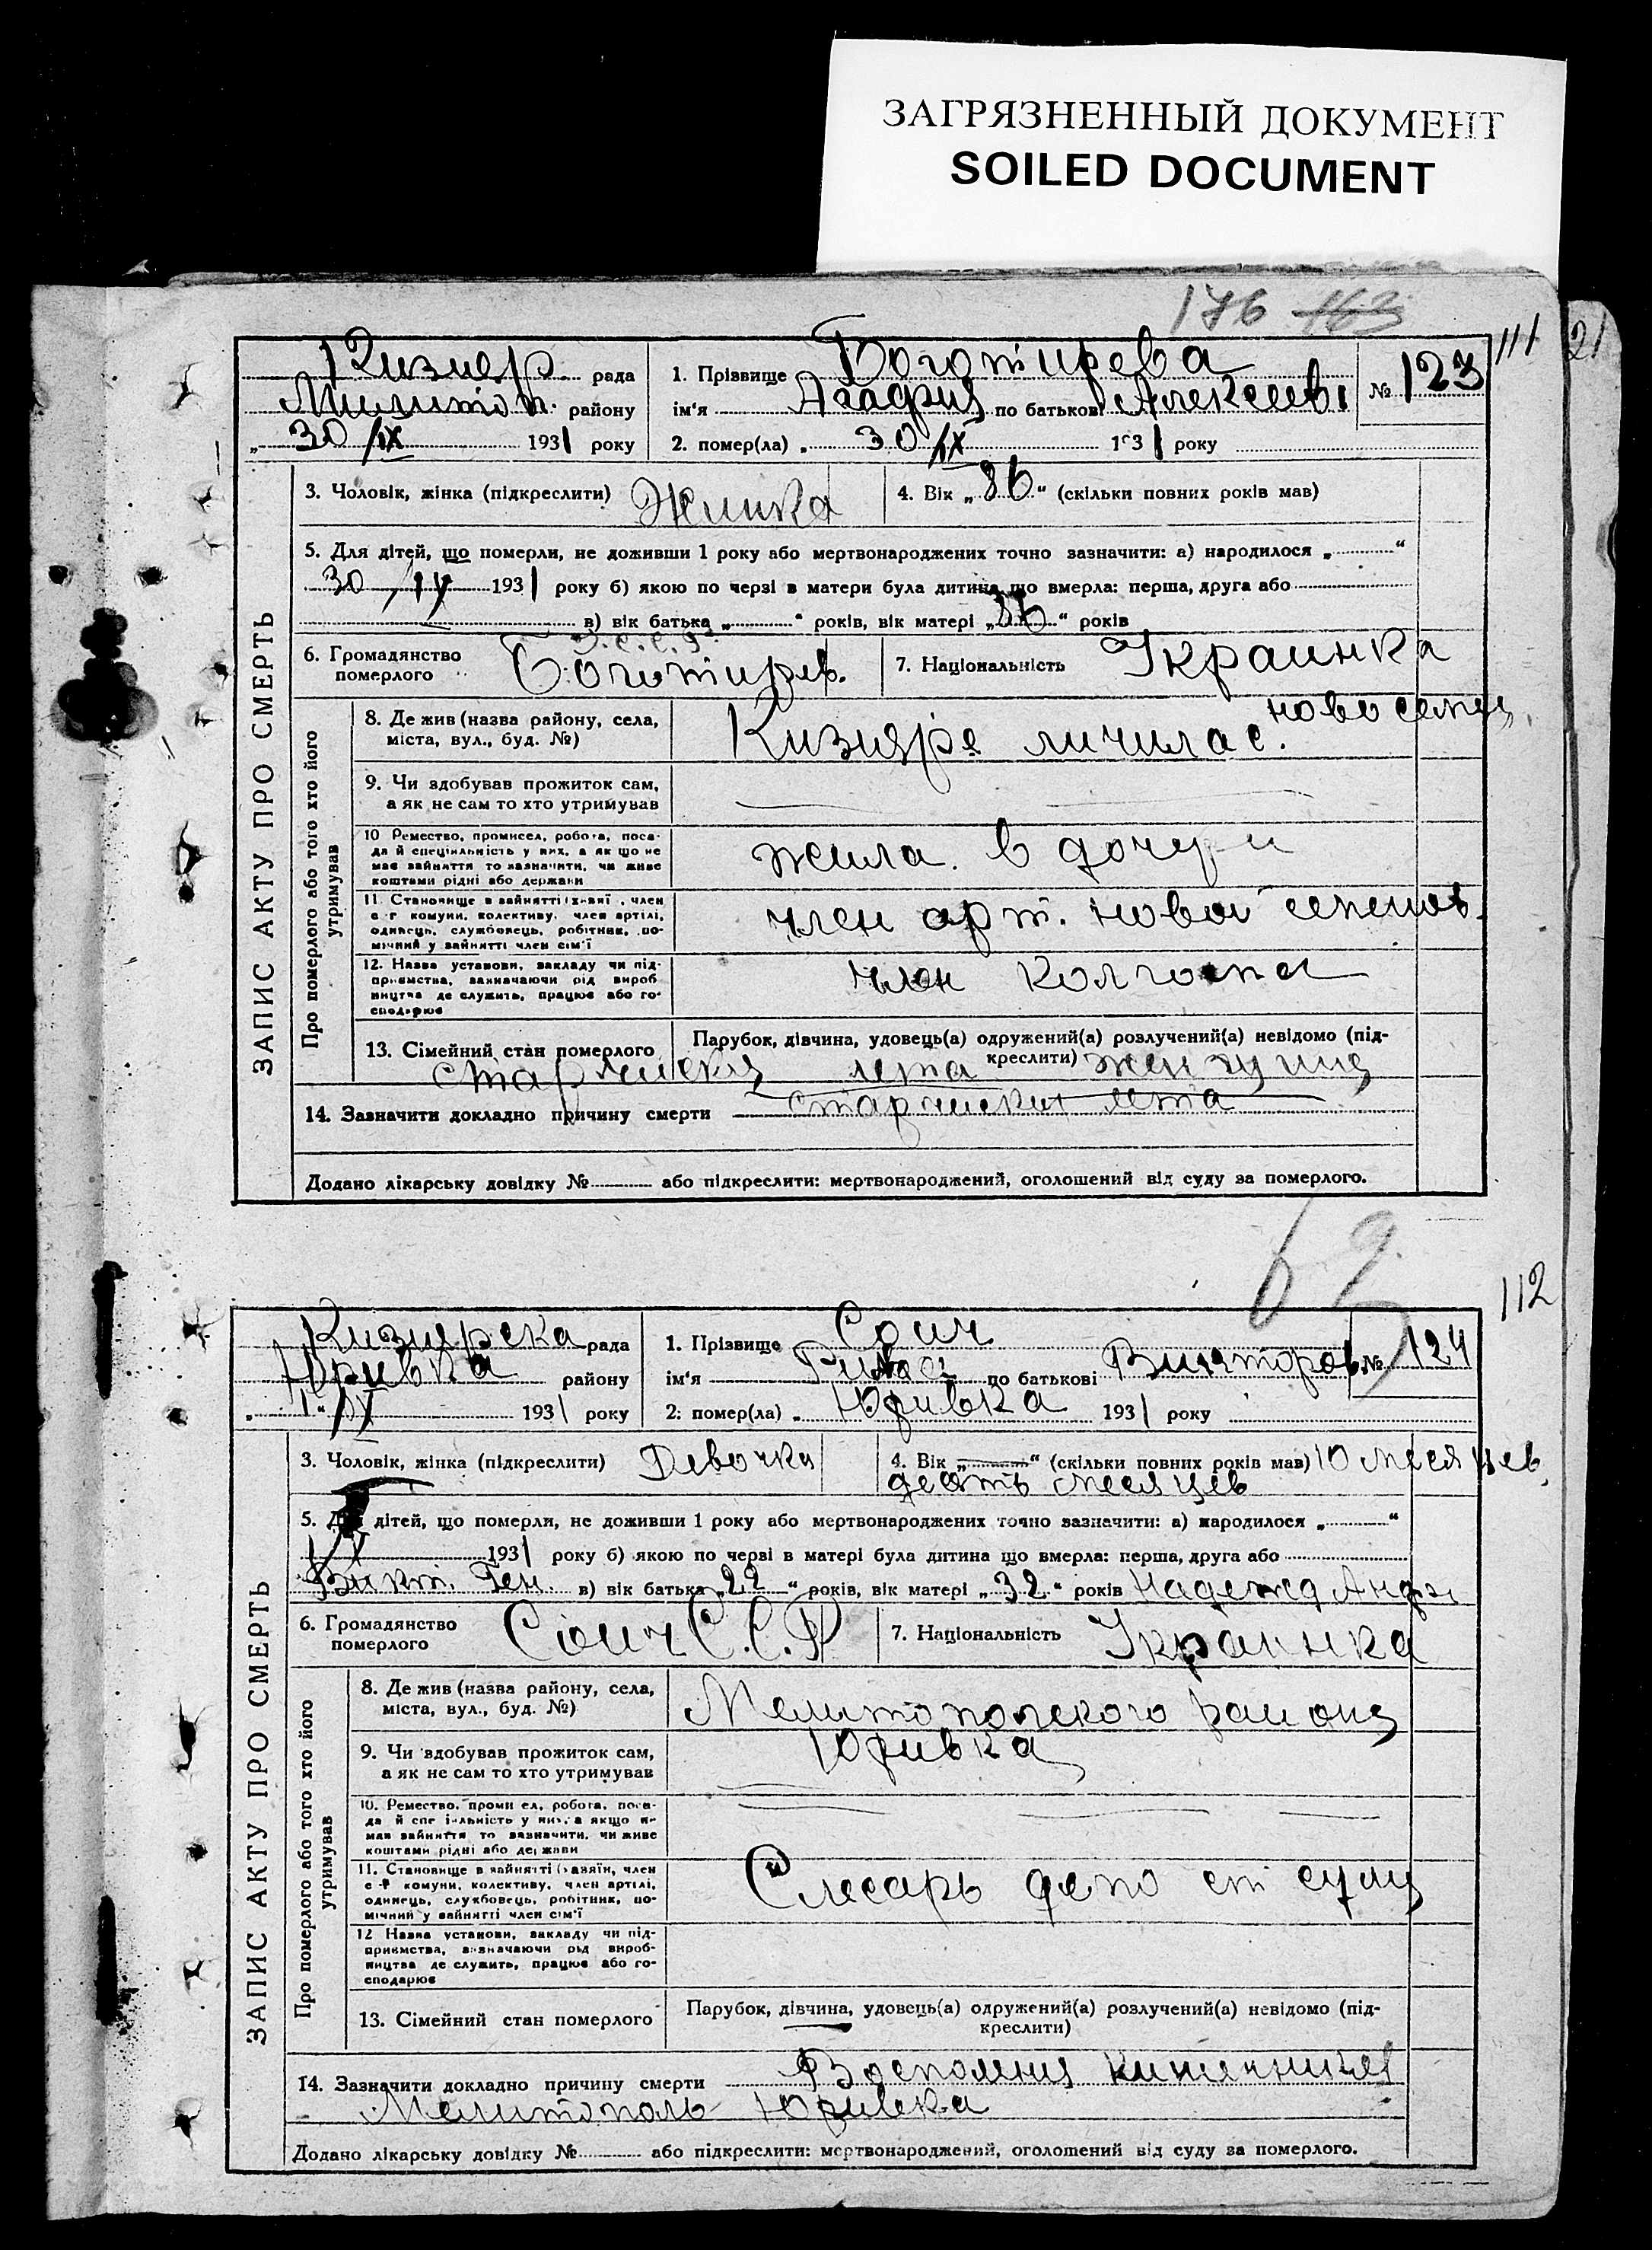 ЗАГРЯЗНЕННЫЙ ДОКУМЕНТ
SOILED DOCUMENT
176 163
111 21
ЗАПИС АКТУ ПРО СМЕРТЬ
Кизиер рада
Милитоп. району
„ 30/IX 1931 року
1. Прізвище Боготирева
ім'я Агафия по батькові Алексеев
№ 123
2. помер(ла) „ 30/IX 1931 року
3. Чоловік, жінка (підкреслити) Жинка
4. Вік „86“ (скільки повних років мав)
5. Для дітей, що померли, не доживши 1 року або мертвонароджених точно зазначити: а) народилося „ “
30/IX 1931 року б) якою по черзі в матери була дитина що вмерла: перша, друга або
в) вік батька „ “ років, вік матері „86“ років
6. Громадянство померлого Боготирев.
7. Національність Украинка
Про померлого або того хто його утримував
8. Де жив (назва району, села, міста, вул., буд. №)
Кизияре личилас.
9. Чи здобував прожиток сам, а як не сам то хто утримував
10 Ремество, промисел, робота, посада й спеціяльність у них, а як що не має зайняття то зазначити, чи живе коштами рідні або держави
жила в дочери
11. Становище в зайнятті (хазяї, член с-г комуни, колективу, член артілі, одинець, службовець, робітник, помічний у зайнятті член сім'ї
член арт. новой
12. Назва установи, закладу чи підприємства, зазначаючи рід виробництва де служить, працює або господарює
член
13. Сімейний стан померлого
Парубок, дівчина, удовець(а) одружений(а) розлучений(а) невідомо (підкреслити)
лета
14. Зазначити докладно причину смерти старческия лета
Додано лікарську довідку № або підкреслити: мертвонароджений, оголошений від суду за померлого.
62
112
ЗАПИС АКТУ ПРО СМЕРТЬ
Кизиярска рада
Юривка району
„ 1“ IX 1931 року
1. Прізвище Соич
ім'я по батькові Викторов
№ 124
2. помер(ла) „ Юривка 1931 року
3. Чоловік, жінка (підкреслити) Девочка
4. Вік „ “ (скільки повних років мав) 10 месяцев
десять месяцев
5. Для дітей, що померли, не доживши 1 року або мертвонароджених точно зазначити: а) народилося „ “
1931 року б) якою по черзі в матері була дитина що вмерла: перша, друга або
Викт. Ген. в) вік батька „22“ років, вік матері „32“ років Надежд
6. Громадянство померлого Соич С.С.Р
7. Національність Украинка
Про померлого або того хто його утримував
8. Де жив (назва району, села, міста, вул., буд. №)
Мелитополского раиона
Юривка
9. Чи здобував прожиток сам, а як не сам то хто утримував
10. Ремество, промисел, робота, посада й спеціяльність у них, а якщо не має зайняття то зазначити, чи живе коштами рідні або держави
11. Становище в зайнятті (хазяїн, член с-г комуни, колективу, член артілі, одинець, службовець, робітник, помічний у зайнятті член сім'ї
Слесарь депо
12 Назва установи, закладу чи підприємства, зазначаючи рід виробництва де служить, працює або господарює
13. Сімейний стан померлого
Парубок, дівчина, удовець(а) одружений(а) розлучений(а) невідомо (підкреслити)
14. Зазначити докладно причину смерти
Мелитополь Юривка
Додано лікарську довідку № або підкреслити: мертвонароджений, оголошений від суду за померлого.